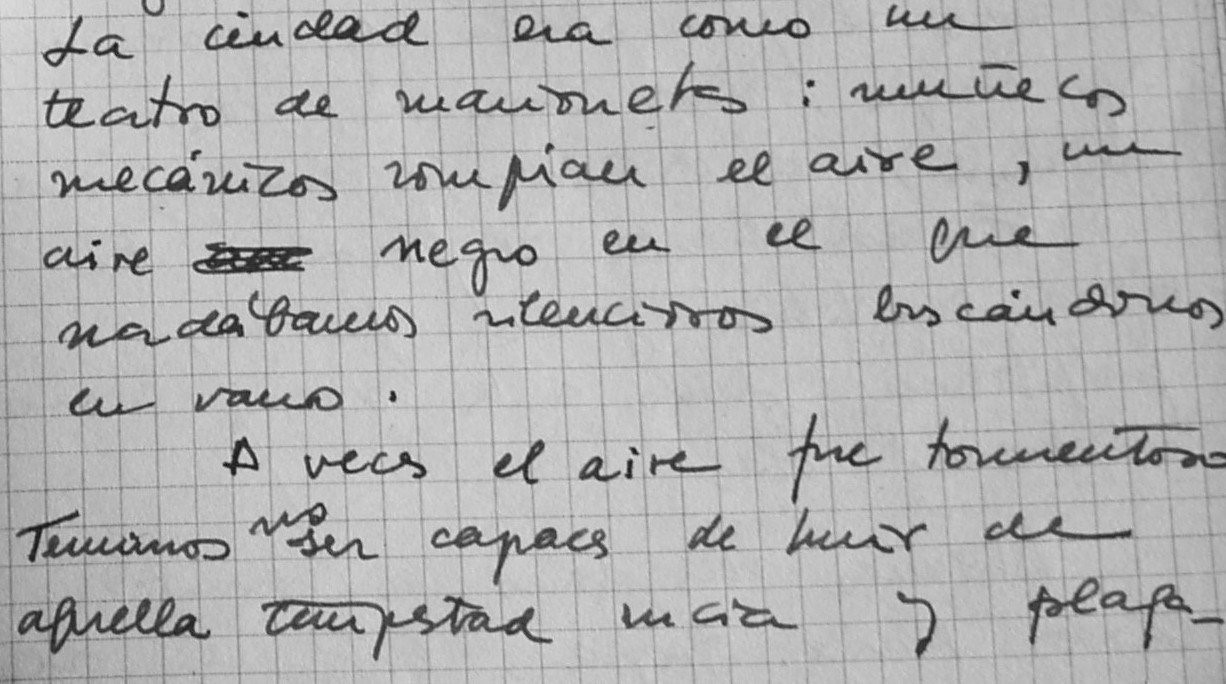 La ciudad era como un
teatro de marionetas : muñecos
mecánicos rompian el aire , un
aire negro en el que
nadábamos silenciosos buscándonos
en vano .
A veces el aire fue tormentoso
Temiamos no ser capaces de huir de
aquella tempestad sucia y plaga-